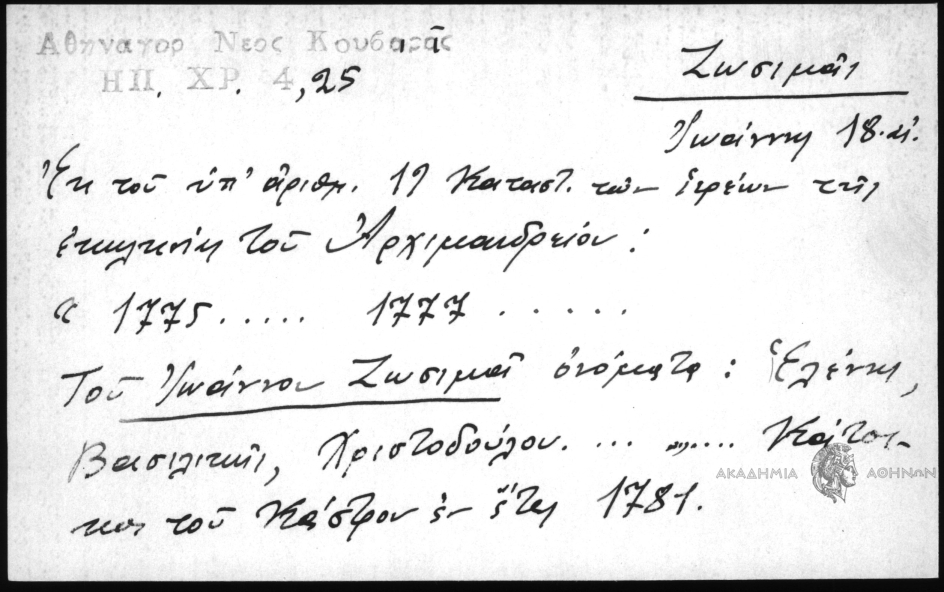 Αθηναγορ Νεος Κουβαρᾶς ᾶ
ΗΠ. ΧΡ. 4, 25
Ζωσιμᾶς
Ἰωάννης 18. αἰ.
Ἐκ τοῦ ὑπ' ἀριθμ. 19 Καταστ. τῶν ἱερέων τῆς
ἐκκλησίας τοῦ Ἀρχιμανδρείου:
« 1775..... 1777 ......
Τοῦ Ἰωάννου Ζωσιμᾶ ὀνόματα: Ἑλένης,
Βασιλικῆς, Χριστοδούλου. ... ..... Κάτοι-
κοι τοῦ Κάστρου ἐν ἔτει 1781.
ΑΚΑΔΗΜΙΑ ΑΘΗΝΩΝ